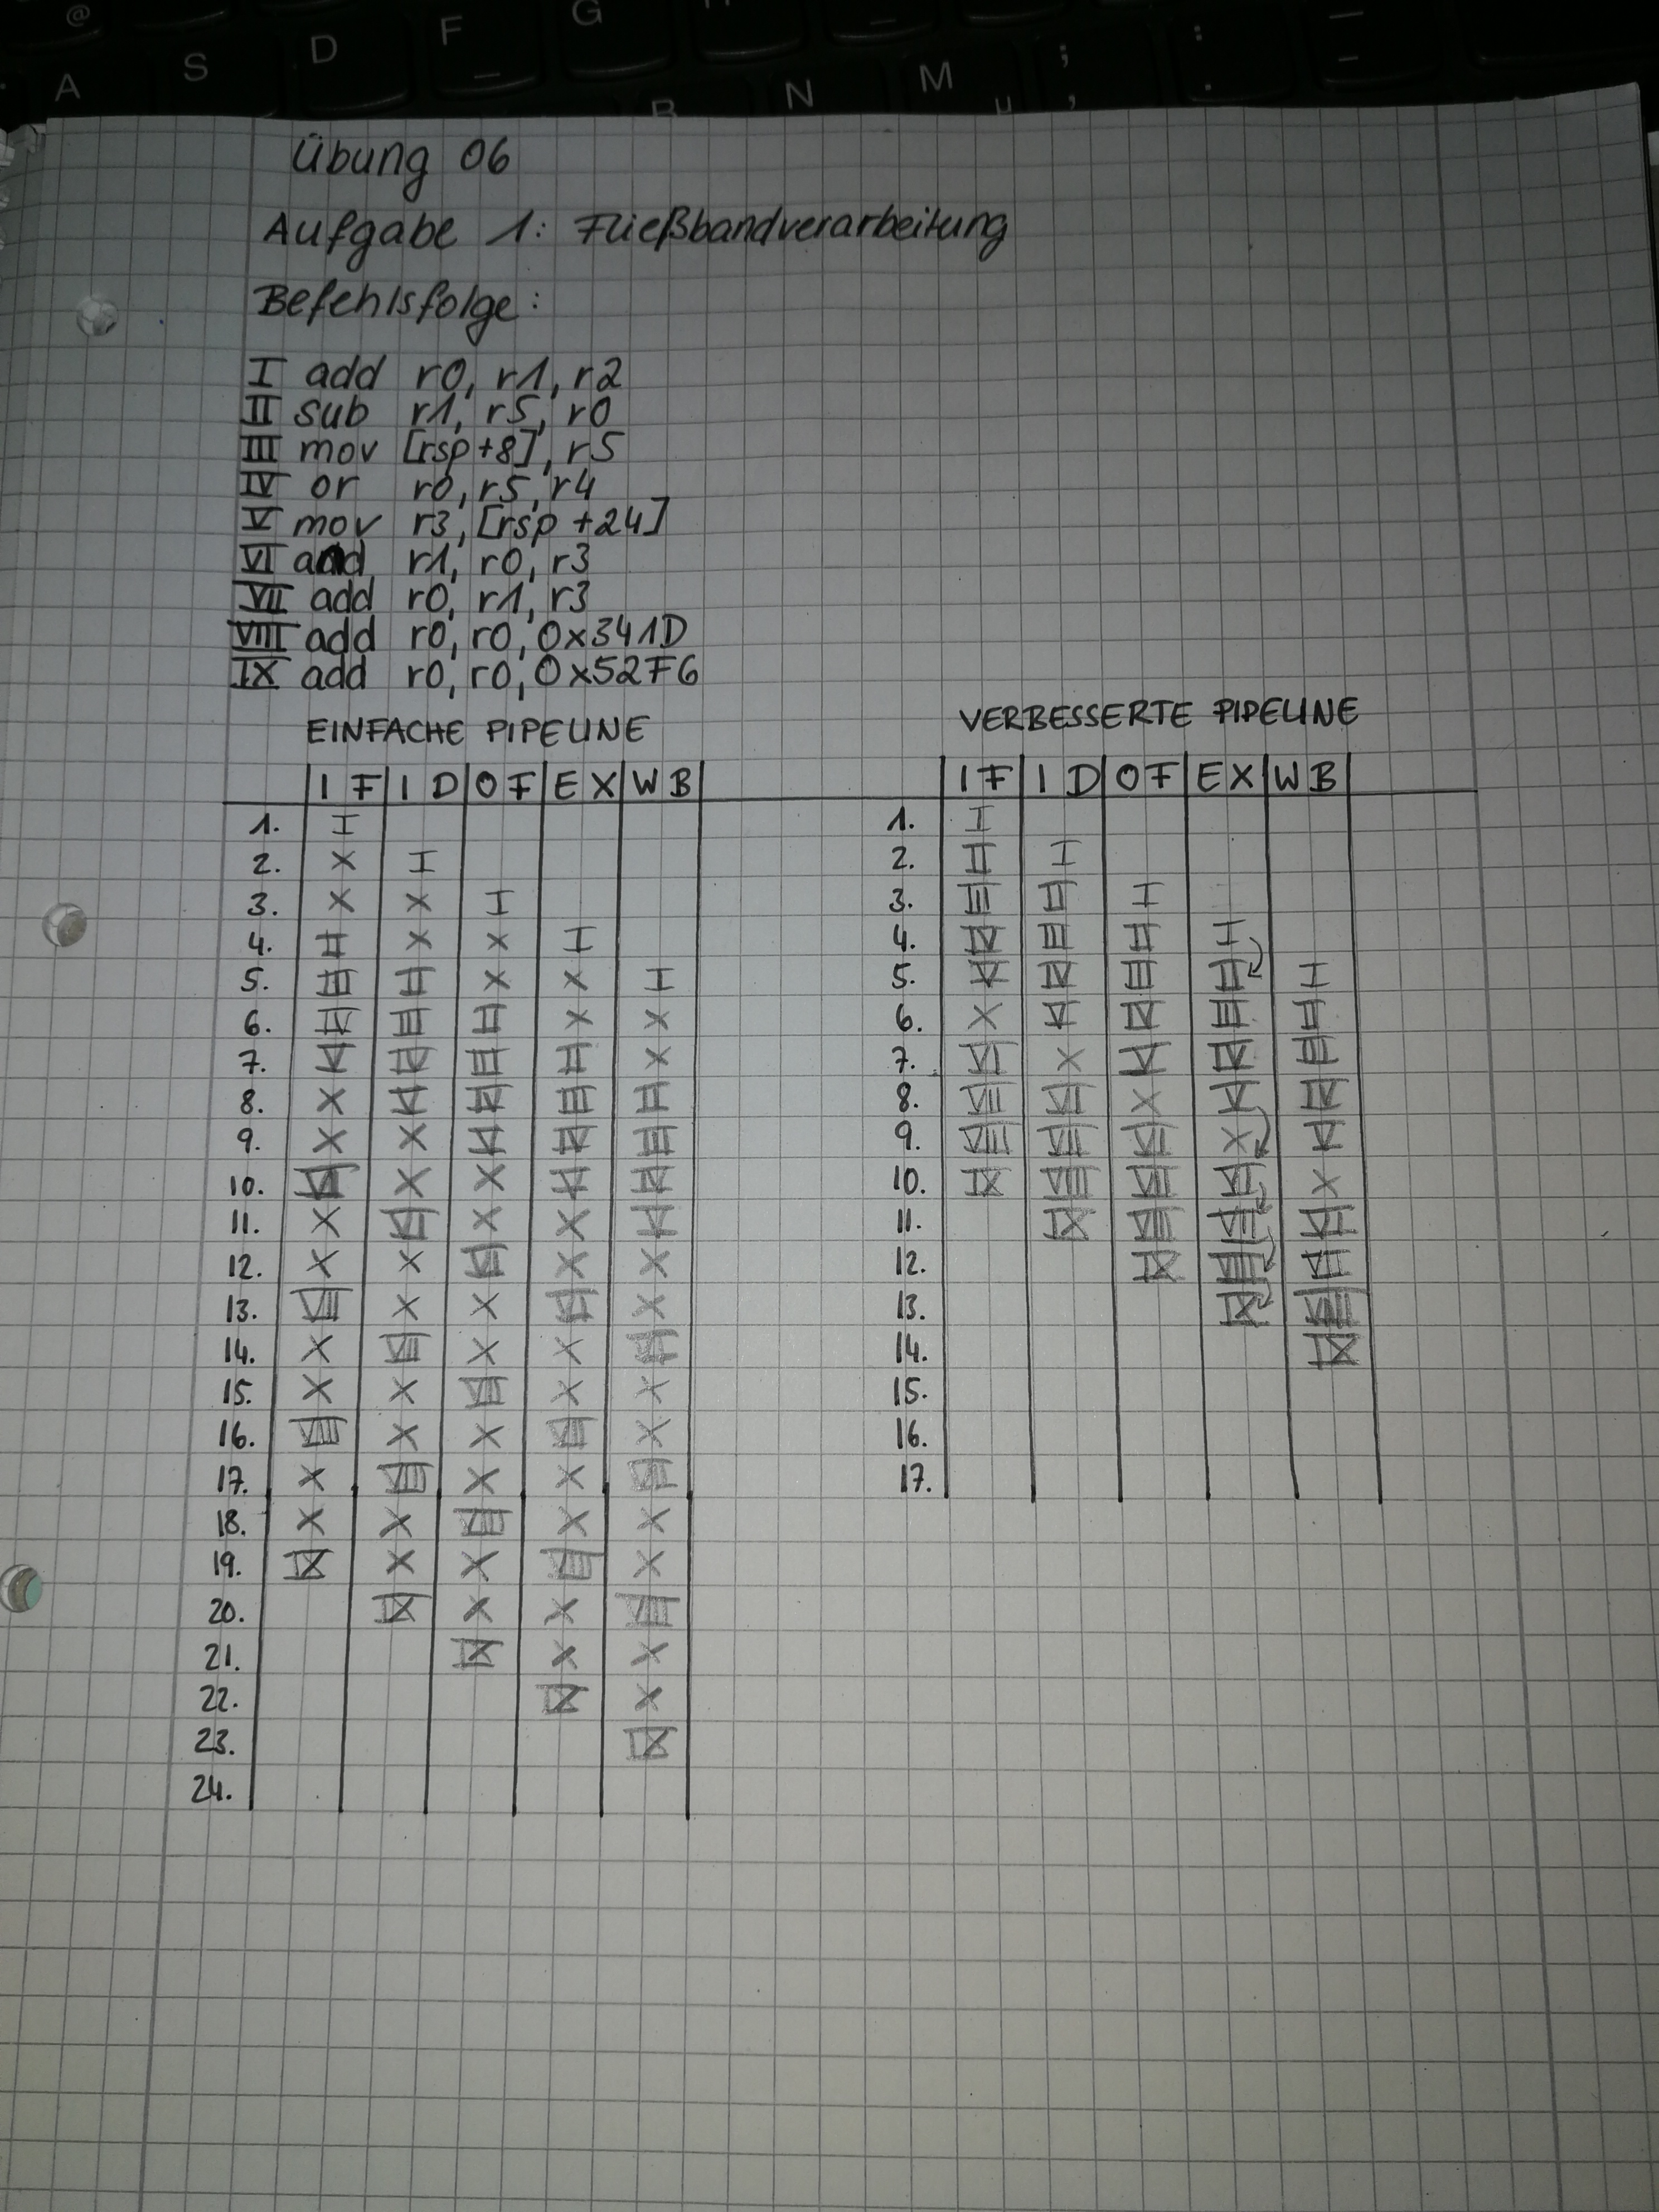 @ G
A S D F N M ; :
Übung 06
Aufgabe 1: Fließbandverarbeitung
Befehlsfolge:
I add r0, r1, r2
II sub r1, r5, r0
III mov [rsp+8], r5
IV or r0, r5, r4
V mov r3, [rsp +24]
VI add r1, r0, r3
VII add r0, r1, r3
VIII add r0, r0, 0x341D
IX add r0, r0, 0x52F6
EINFACHE PIPELINE
IF ID OF EX WB
1. I
2. X I
3. X X I
4. II X X I
5. III II X X I
6. IV III II X X
7. V IV III II X
8. X V IV III II
9. X X V IV III
10. VI X X V IV
11. X VI X X V
12. X X VI X X
13. VII X X VI X
14. X VII X X VI
15. X X VII X X
16. VIII X X VII X
17. X VIII X X VII
18. X X VIII X X
19. IX X X VIII X
20. IX X X VIII
21. IX X X
22. IX X
23. IX
24.
VERBESSERTE PIPELINE
IF ID OF EX WB
1. I
2. II I
3. III II I
4. IV III II I
5. V IV III II I
6. X V IV III II
7. VI X V IV III
8. VII VI X V IV
9. VIII VII VI X V
10. IX VIII VII VI X
11. IX VIII VII VI
12. IX VIII VII
13. IX VIII
14. IX
15.
16.
17.